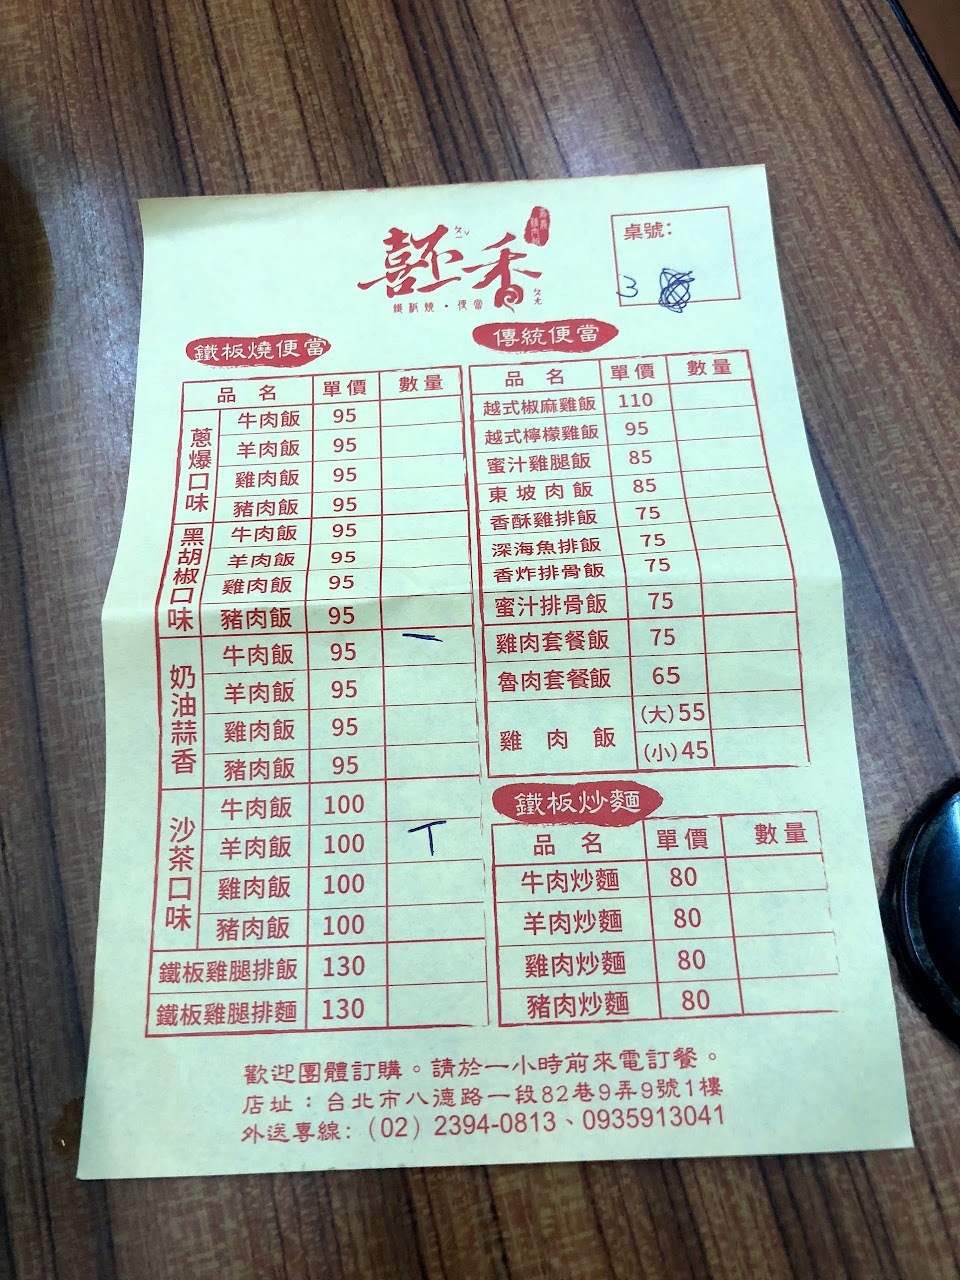 喜丕香
ㄆㄧˇ
ㄆㄤ
嘉義
雞肉飯
鐵板燒・便當
桌號：
3
鐵板燒便當
品名 單價 數量
蔥爆口味
牛肉飯 95
羊肉飯 95
雞肉飯 95
豬肉飯 95
黑胡椒口味
牛肉飯 95
羊肉飯 95
雞肉飯 95
豬肉飯 95
奶油蒜香
牛肉飯 95 一
羊肉飯 95
雞肉飯 95
豬肉飯 95
沙茶口味
牛肉飯 100
羊肉飯 100 T
雞肉飯 100
豬肉飯 100
鐵板雞腿排飯 130
鐵板雞腿排麵 130
傳統便當
品名 單價 數量
越式椒麻雞飯 110
越式檸檬雞飯 95
蜜汁雞腿飯 85
東坡肉飯 85
香酥雞排飯 75
深海魚排飯 75
香炸排骨飯 75
蜜汁排骨飯 75
雞肉套餐飯 75
魯肉套餐飯 65
雞肉飯 (大)55
(小)45
鐵板炒麵
品名 單價 數量
牛肉炒麵 80
羊肉炒麵 80
雞肉炒麵 80
豬肉炒麵 80
歡迎團體訂購。請於一小時前來電訂餐。
店址：台北市八德路一段82巷9弄9號1樓
外送專線：（02）2394-0813、0935913041